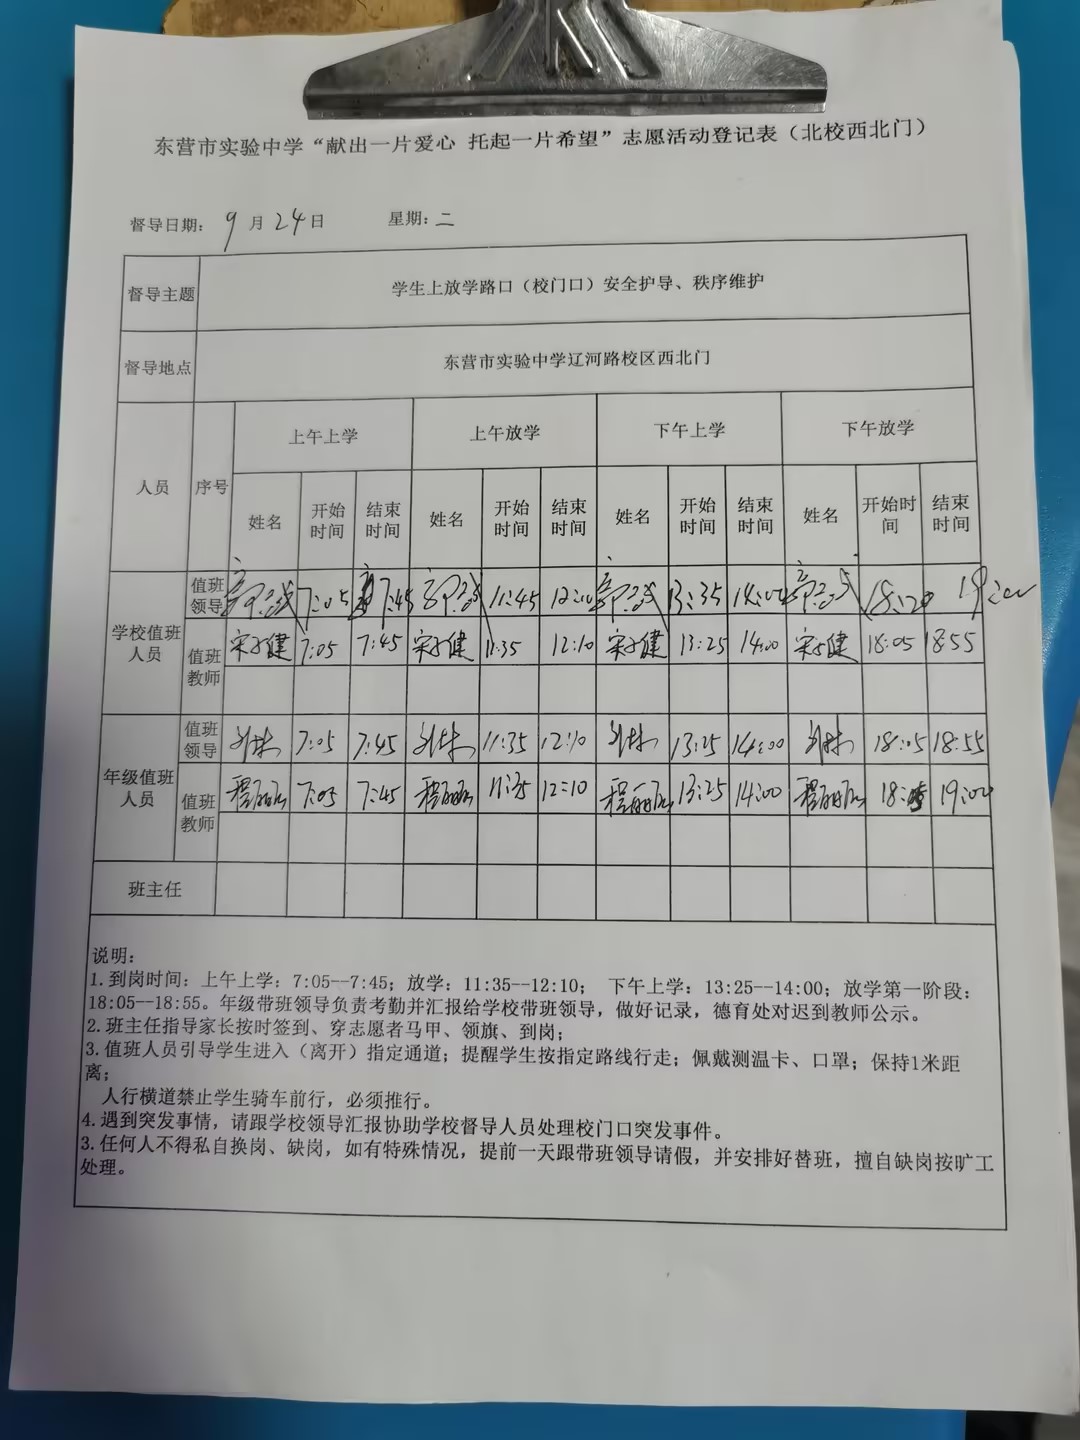 东营市实验中学“献出一片爱心 托起一片希望”志愿活动登记表（北校西北门）
督导日期： 9月24日 星期：二
督导主题 学生上放学路口（校门口）安全护导、秩序维护
督导地点 东营市实验中学辽河路校区西北门
人员 序号 上午上学 上午放学 下午上学 下午放学
姓名 开始时间 结束时间 姓名 开始时间 结束时间 姓名 开始时间 结束时间 姓名 开始时间 结束时间
学校值班人员 值班领导 7:05 7:45 11:45 13:35 14:00 18:20 19:00
值班教师 7:05 7:45 11:35 12:10 13:25 14:00 18:05 18:55
年级值班人员 值班领导 7:05 7:45 11:35 12:10 13:25 14:00 18:05 18:55
值班教师 7:05 7:45 11:35 12:10 13:25 14:00 19:00
班主任
说明：
1.到岗时间：上午上学：7:05--7:45；放学：11:35--12:10； 下午上学：13:25--14:00；放学第一阶段：
18:05--18:55。年级带班领导负责考勤并汇报给学校带班领导，做好记录，德育处对迟到教师公示。
2.班主任指导家长按时签到、穿志愿者马甲、领旗、到岗；
3.值班人员引导学生进入（离开）指定通道；提醒学生按指定路线行走；佩戴测温卡、口罩；保持1米距
离；
人行横道禁止学生骑车前行，必须推行。
4.遇到突发事情，请跟学校领导汇报协助学校督导人员处理校门口突发事件。
3.任何人不得私自换岗、缺岗，如有特殊情况，提前一天跟带班领导请假，并安排好替班，擅自缺岗按旷工
处理。